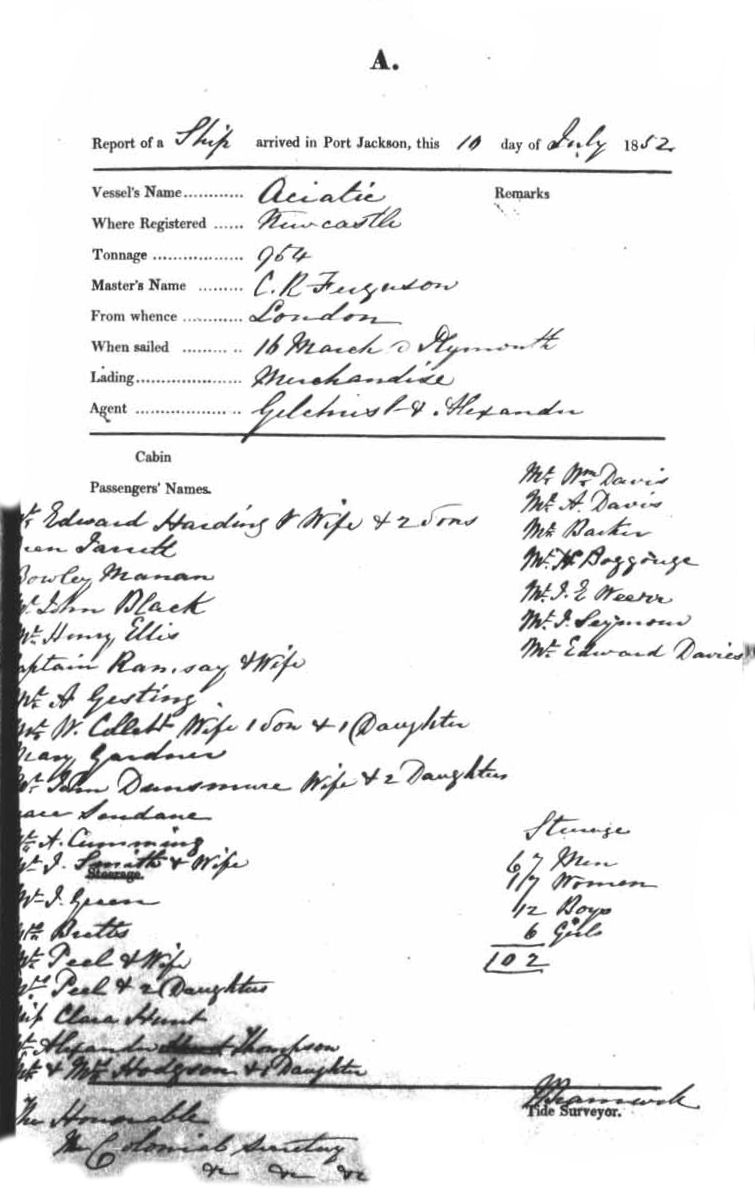 A.
Report of a Ship arrived in Port Jackson, this 10 day of July 1852.
Vessel's Name............ Aciatic
Remarks
Where Registered ...... Newcastle
Tonnage .................. 954
Master's Name ......... C. R Ferguson
From whence ............ London
When sailed ......... .. 16 March Plymouth
Lading..................... Merchandise
Agent .................. .. Gilchrist & Alexander
Cabin
Passengers' Names.
Mr Edward Harding & Wife & 2 Sons
Jarrett
Bowley Manan
Mr John Black
Mr Henry Ellis
Captain Ramsay & Wife
Mr A Gesting
Mr W. Collett Wife 1 Son & 1 Daughter
Mary Gardner
Mr John Dunsmure Wife & 2 Daughters
Sendane
Mr A. Cumming
Mr J. Smith & Wife
Steerage.
Mr J. Green
Mrs Bretts
Mr Peel & Wife
Mrs Peel & 2 Daughters
Miss Clara Hunt
Mr Alexander Thompson
Mr & Mrs Hodgson & 1 Daughter
Mr Wm Davis
Mr A. Davis
Mr Barker
Mr H Boggonge
Mr J. E Weerr
Mr J. Seymour
Mr Edward Davies
Steerage
67 Men
17 Women
12 Boys
6 Girls
102
Tide Surveyor.
The Honorable
The Colonial Secretary
&c &c &c